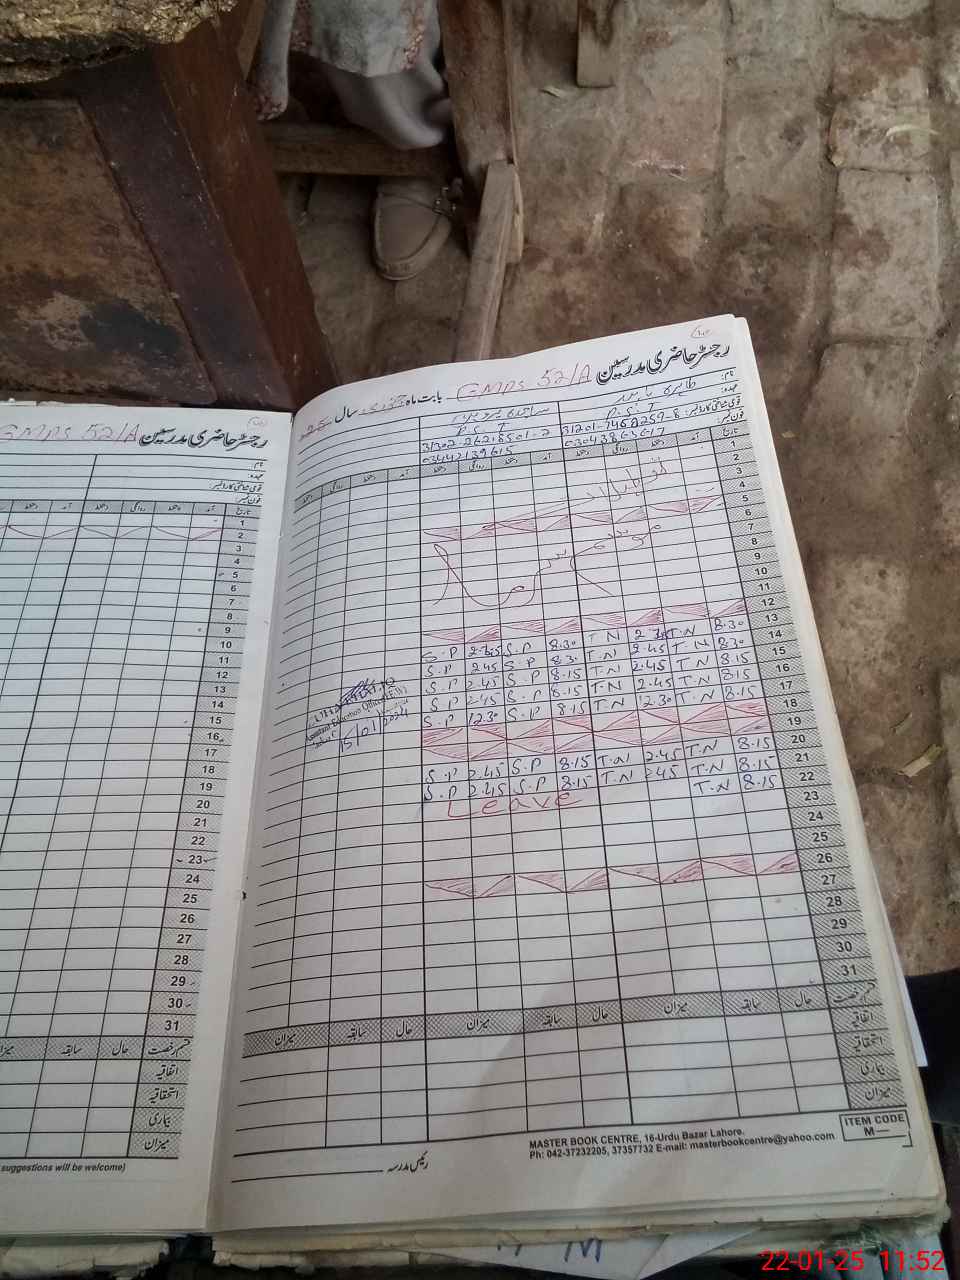 رجسٹر حاضری مدرسین GMPS 52/A بابت ماہ جنوری سال 25
نام:
عہدہ:
قومی شناختی کارڈ نمبر:
فون نمبر:
P.S.T
P.S.T
31201-7468259-8
31302-2621850-2
03043863617
03442139615
تاریخ آمد دستخط روانگی دستخط آمد دستخط روانگی دستخط آمد دستخط روانگی دستخط
1
2
3
4
5
6
7
8
9
10
11
12
13 8.30 T.N 2.45 T.N 8.30 S.P 2.45 S.P
14 8.30 T.N 2.45 T.N 8.30 S.P 2.45 S.P
15 8.15 T.N 2.45 T.N 8.15 S.P 2.45 S.P
16 8.15 T.N 2.45 T.N 8.15 S.P 2.45 S.P
17 8.15 T.N 12.30 T.N 8.15 S.P 12.30 S.P
18
19
20 8.15 T.N 2.45 T.N 8.15 S.P 2.45 S.P
21 8.15 T.N 2.45 T.N 8.15 S.P 2.45 S.P
22 8.15 T.N Leave
23
24
25
26
27
28
29
30
31
Assistant Education Officer
15/01/2024
قسم رخصت حال سابقہ میزان حال سابقہ میزان حال سابقہ میزان
اتفاقیہ
استحقاقیہ
بیماری
میزان
رئیس مدرسہ
MASTER BOOK CENTRE, 16-Urdu Bazar Lahore.
Ph: 042-37232205, 37357732 E-mail: masterbookcentre@yahoo.com
ITEM CODE
M—
رجسٹر حاضری مدرسین GMPS 52/A
نام:
عہدہ:
قومی شناختی کارڈ نمبر:
فون نمبر:
تاریخ آمد دستخط روانگی دستخط آمد
1
2
3
4
5
6
7
8
9
10
11
12
13
14
15
16
17
18
19
20
21
22
23
24
25
26
27
28
29
30
31
قسم رخصت حال سابقہ میزان
اتفاقیہ
استحقاقیہ
بیماری
میزان
suggestions will be welcome)
22-01-25 11:52